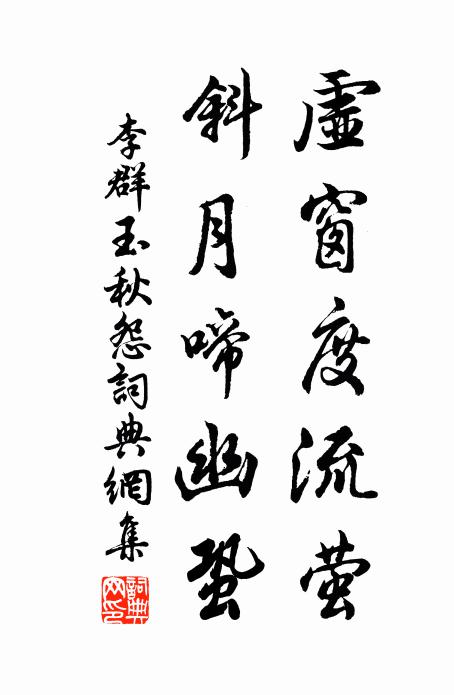 虛窗度流萤
斜月啼幽蛩
李群玉秋怨詞典網集
詞典网印